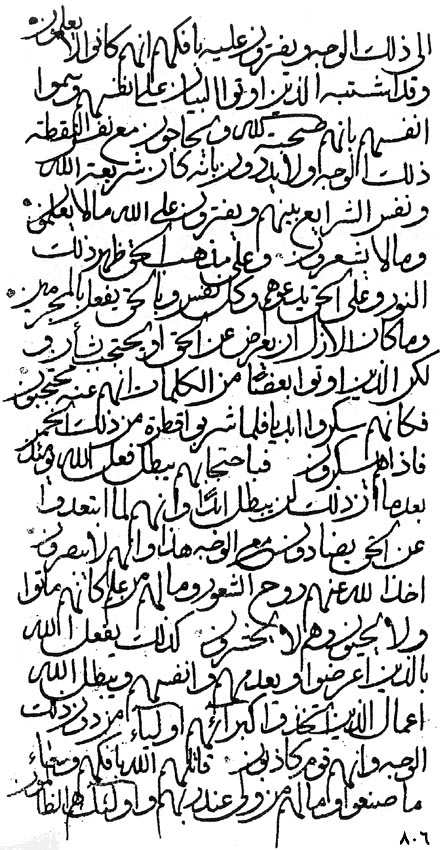 الی ذلك الوجه ويفترون عليه بافكهم انهم كانوا لا يعلمون
وقد اشتبه الذين اوتوا البيان علی انفسهم وسموا
انفسهم بانهم صحبة لله ويحاجون مع نفس النقطة
ذلك الوجه ولا يدرون بانه كان شريعة الله
ونفس الشرايع بينهم ويفترون علی الله مالا يعلمون
ومالا يشعرون وعلی مذهب الحق ظهر ذلك
النور وعلی الحق يدعوهم وكل نفس وبالحق يفعل بالمجرمين
وما كان الازل ان يعرض عن الحق او يحتجب بشأن و
لكن الذين اوتوا بعضا من الكلمات انهم عنه محتجبون
فكانهم سكروا ابديا فلما شربوا قطرة من ذلك الخمر
فاذا هم سكرون فباحتجابهم يبطل فعل الله يومئذ
بعدما ان ذلك لن يبطل ابدا وانهم لما ابتعدوا
عن الحق يضادون مع الوجه هذا وانهم لا يبصرون
اخذ الله عنهم روح الشعور وما لهم من علم كانهم ماتوا
ولا يحيون وهم لا يحشرون كذلك يفعل الله
بالذين اعرضوا ويعدمهم وانفسهم ويبطل الله
اعمال الذين اتخذوا اكبرائهم اولياء من دون ذلك
الوجه وانهم قوم كاذبون قاتلهم الله بافكهم وساء
ما صنعوا وما لهم من ولی عند ربهم واولئك هم الظالمون
٨٠٦